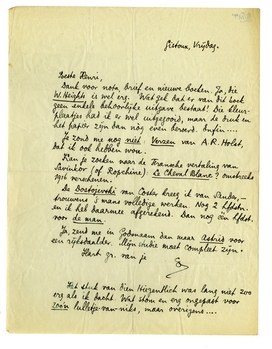 Gistoux, Vrijdag.
Beste Henri,
Dank voor nota, brief en nieuwe boeken. Ja, die
W. Heights is wel erg. Wat gek dat er van dit boek
geen enkele behoorlijke uitgave bestaat! Die kleur-
plaatjes had ik er wel uitgegooid, maar de druk en
het papier zijn dan nog even beroerd. Enfin....
Ja zend me nog niet: Verzen van A.R. Holst,
dat ik ook hebben wou.
Kan je zoeken naar de Fransche vertaling van
Savinkov (of Ropchine): Le Cheval Blême? omstreeks
1916 verschenen.
De Dostojevski van Coster kreeg ik van Sander,
trouwens 's mans volledige werken. Nog 2 hfdstn.
en ik heb daarmee afgerekend. Dan nog één hfdst.
voor de man.
Ja, zend me in Godsnaam dan maar Astrid voor
een rijksdaalder. Mijn serie moet compleet zijn.
Hart. gr. van je
Het stuk van dien Hiegentlich was lang niet zoo
erg als ik dacht. Wat stom en erg ongepast voor
zoo'n lulletje-van-niks, maar overigens....